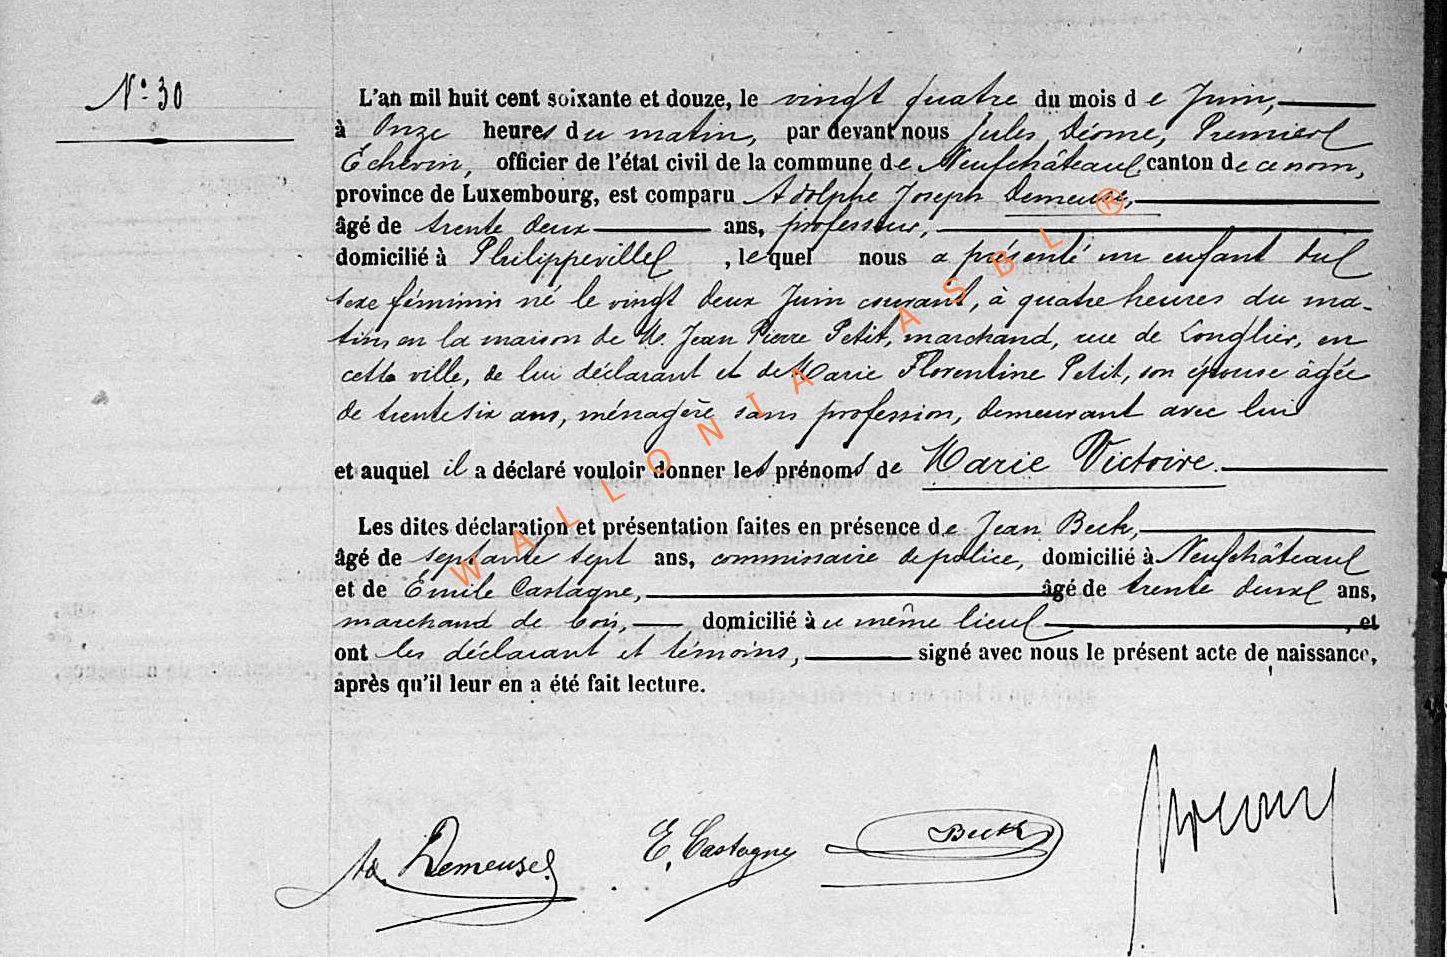 N° 30
L'an mil huit cent soixante et douze, le vingt quatre du mois de Juin,
à Onze heures du matin, par devant nous Jules Déome, Premier
Echevin, officier de l'état civil de la commune de Neufchâteau, canton de ce nom,
province de Luxembourg, est comparu Adolphe Joseph Demeuse,
âgé de trente deux ans, professeur,
domicilié à Philippeville , lequel nous a présenté un enfant du
sexe féminin né le vingt deux Juin courant, à quatre heures du ma-
tin en la maison de M. Jean Pierre Petit, marchand, rue de Longlier, en
cette ville, de lui déclarant et de Marie Florentine Petit, son épouse âgée
de trente six ans, ménagère sans profession, demeurant avec lui
et auquel il a déclaré vouloir donner les prénoms de Marie Victoire.
Les dites déclaration et présentation faites en présence de Jean Beck,
âgé de septante sept ans, commissaire de police, domicilié à Neufchâteau
et de Emile Castagne, âgé de trente deux ans,
marchand de bois, domicilié à ce même lieu , et
ont les déclarant et témoins, signé avec nous le présent acte de naissance,
après qu'il leur en a été fait lecture.
Ad. Demeuse. E. Castagne Beck
WALLONIA ASBL ®